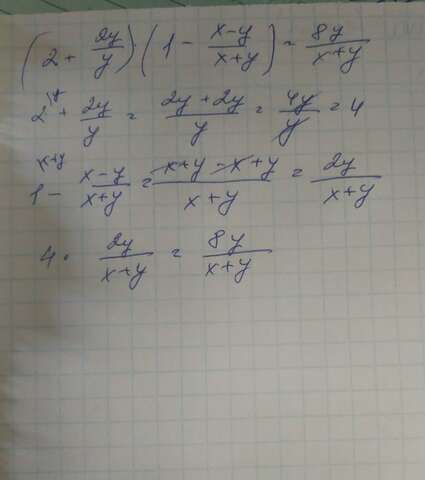 (2 + 2y/y) · (1 - x-y/x+y) = 8y/x+y
2\y + 2y/y = 2y+2y/y = 4y/y = 4
1\x+y - x-y/x+y = x+y-x+y/x+y = 2y/x+y
4 · 2y/x+y = 8y/x+y